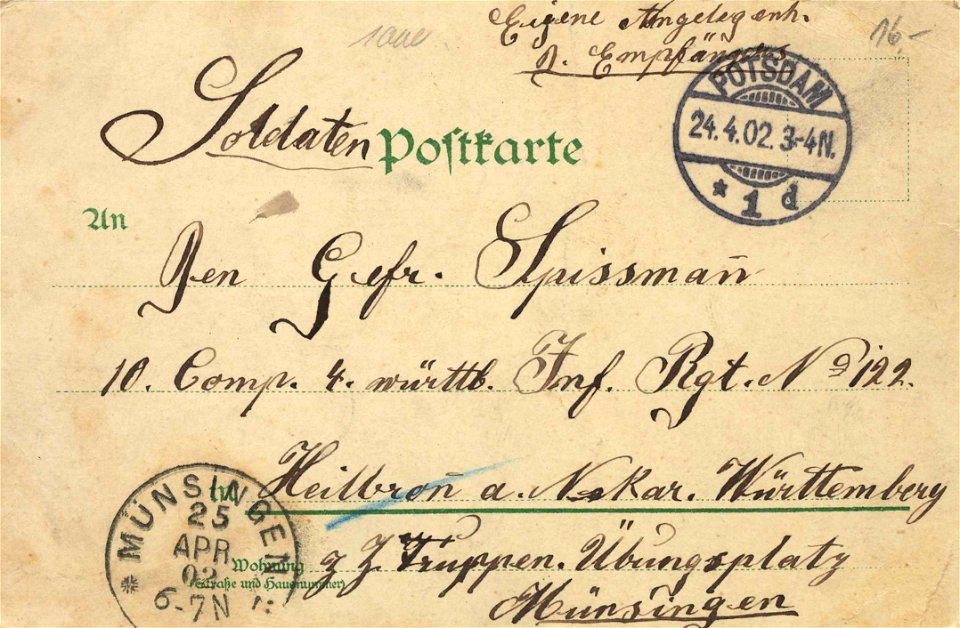 Eigene Angelegenh.
d. Empfängers
16.-
Soldaten Postkarte
POTSDAM
24.4.02. 3-4N.
* 1 d
An
Den Gefr. Spissmañ
10. Comp. 4. württb. Inf. Rgt. No 122.
in Heilbroñ a. Nekar. Württemberg
MÜNSINGEN
25
APR
02
6-7N
Wohnung
(Straße und Hausnummer)
z. Z. Truppen. Übungsplatz
Münsingen